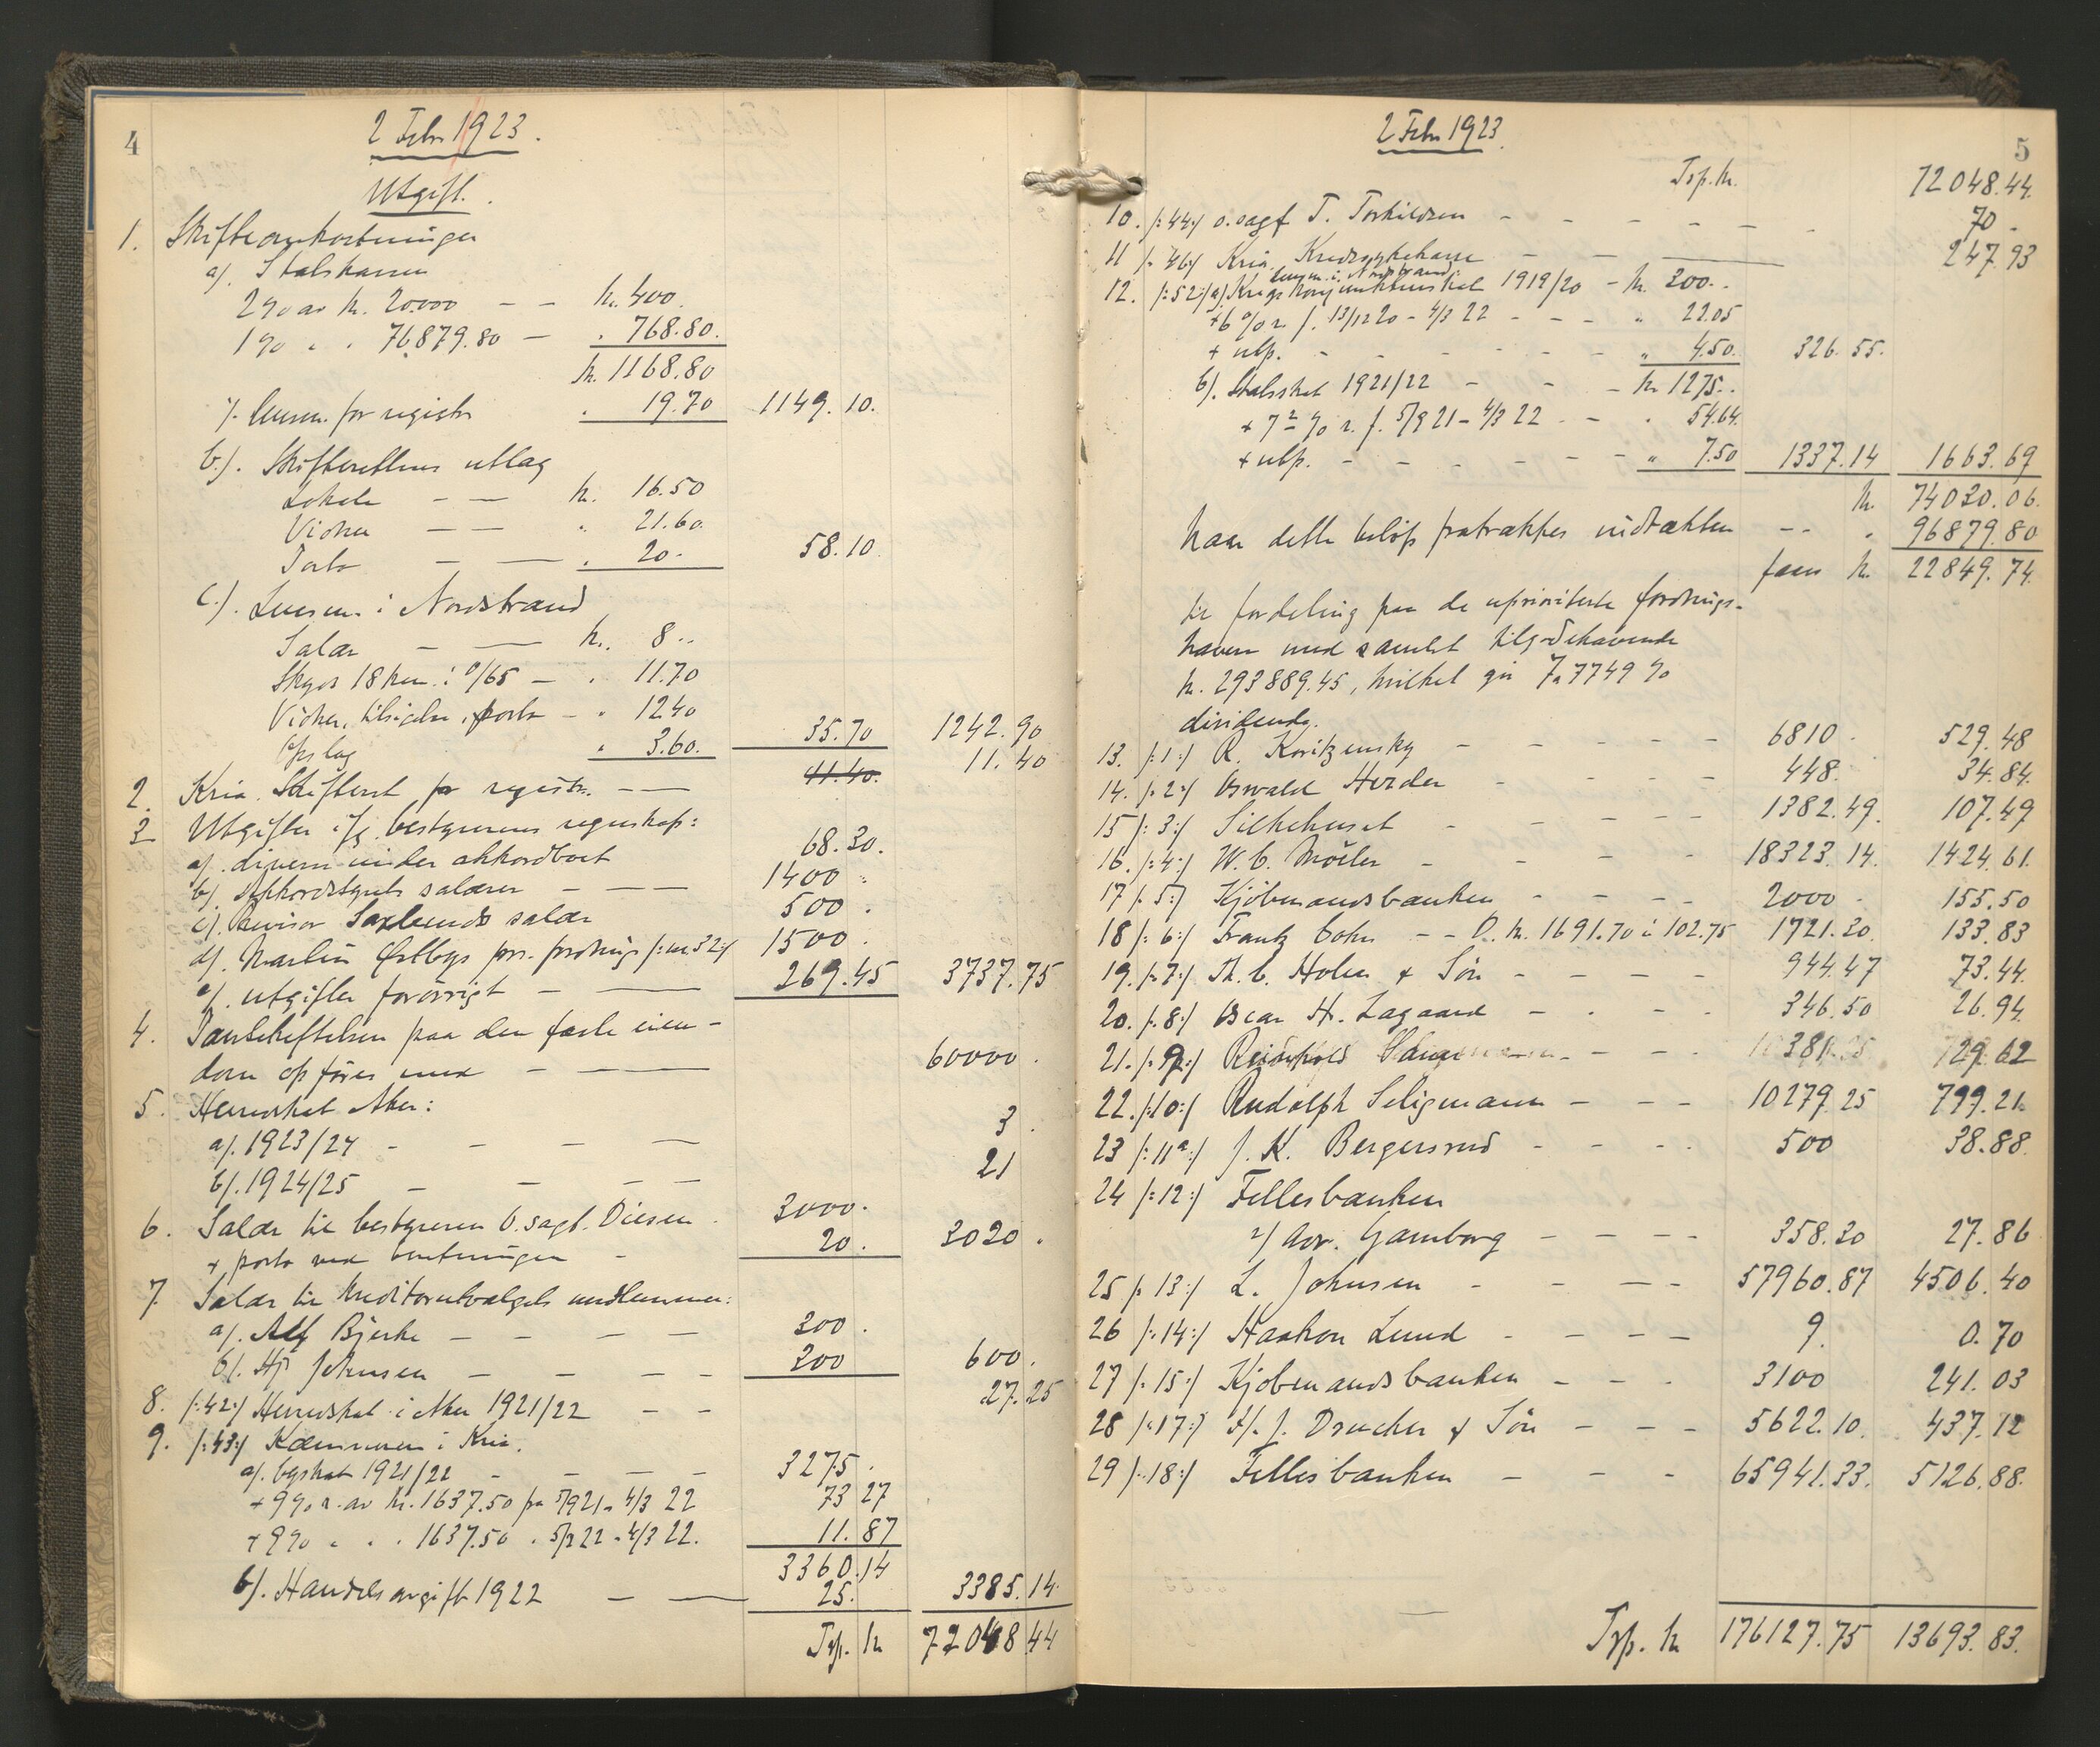 4
2 Febr 1923.
Utgift.
1. Skifteomkostninger
a/. Statskassen
2% av kr. 20.000 — — kr. 400.
1% " " 76879.80 — " 768.80.
kr. 1168.80
÷ lensm. for registr " 19.70 1149.10.
b/. Skifterettens utlæg
Lokale — — kr. 16.50
Vidner — — " 21.60.
Porto — — " 20.- 58.10
c/. Lensm. i Nordstrand
Salær — — kr. 8.-
Skyds 18 km. i 0/65 — " 11.70
Vidner, tilsigelse, porto — " 12.40
Opslag " 3.60. 35.70 1242.90
2. Kria. Skifteret for registr. — — 11.40. 11.40
3 Utgifter ifg. bestyrerens regnskap:
a/. diverse under akkordboet 68.30.
b/. Akkordstyrets salærer — — — 1400.-
c/. Revisor Saxlunds salær 500.
d/. Martin Østbys pri. fordring /: nr. 32:/ 1500.
e/. utgifter forövrigt — — 269.45 3737.75
4. Pantheftelsen paa den faste eien-
dom opföres med — — 60000.
5. Herredskat Aker:
a/. 1923/24 - — — — 3.
b/. 1924/25 — — — — 21
6. Salær til bestyreren O.sagf. Diesen 3000.
+ porto ved beretningen - 20. 3020.
7. Salær til Kreditorutvalgets medlemmer:
a/. Alf Bjerke — — — — 300.
b/. Hj. Johnsen — — — — 300 600.
8. /:42:/ Herredskat i Aker 1921/22 — — 27.25
9. /:43:/ Kæmneren i Kria.
a/. byskat 1921/22 - — — — 3275.
+ 9% r. av kr. 1637.50 fra 5/9 21 - 4/3 22 73 27
+ 9% " " " 1637.50 " 5/2 22 - 4/3 22. 11.87
3360.14
b/. Handelsavgift 1922 — — 25. 3385.14.
Trp. kr 72048.44
5
2 Febr 1923.
Trp. kr. 72048.44.
10. /:44:/ o.sagf T. Torkildsen - - - - - 70 -
11 /:46:/ Kria. Kredssykekasse — — — 247.93
lensm. i Nordstrand
12. /:52:/ a/ Krigskonjunkturskat 1919/20 - kr. 300.-
+ 6% r. f. 13/12 20 - 4/3 22 - - - " 22.05
+ utp. - - - - - - " 4.50. 326.55.
b/. Statsskat 1921/22 - - - kr 1275.-
+ 7½% r. f. 5/9 21 - 4/3 22 - - " 54.64.
+ utp. - - - - - - " 7.50 1337.14 1663.69
kr. 74030.06.
Naar dette belöp fratrækkes indtækten -- " 96879.80
faaes kr. 22849.74.
til fordeling paa de uprioriterte fordrings-
havere med samlet tilgodehavende
kr. 293889.45, hvilket gir 7,7749 %
dividende.
13. /:1:/ R. Koritzinsky - - - - - 6810 - 529.48
14. /:2:/ Oswald Herder - - - 448. 34.84.
15 /:3:/ Silkehuset - - - - - 1382.49. 107.49
16. /:4:/ W. C. Möller - - - - 18323.14. 1424.61.
17 /:5:/ Kjöbmandsbanken - - - - 2000 - 155.50
18 /:6:/ Frantz Cohn -- D. kr. 1691.70 à 102.75 1721.30. 133.83
19. /:7:/ Th. C. Holm & Sön - - - - 944.47 73.44.
20. /:8:/ Oscar H. Lagaard - - - - 346.50 26.94.
21. /:9:/ - - - 381. 29.62
22. /:10:/ Rudolph Seligmann - - - 10279.25 799.21.
23 /:11a:/ J. K. Bergersrud - - - - 500 38.88.
24 /:12:/ Fellesbanken
v/ Adv. Gamborg - - - - 358.30 27.86
25 /:13:/ L. Johnsen - - - - 57960.87 4506.40
26 /:14:/ Haakon Lund - - - - 9. 0.70
27 /:15:/ Kjöbmandsbanken - - - 3100 241.03
28 /:17:/ A/. J. Drucker & Sön - - - 5622.10. 437.12
29 /:18:/ Fellesbanken - - - 65941.33. 5126.88.
Trp. kr 176127.75 13693.83.